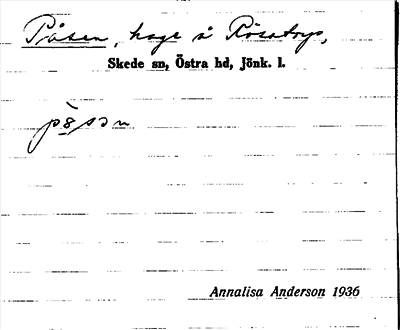 Påsen, hage å Rösatorp,
Skede sn, Östra hd, Jönk. l.
Annalisa Anderson 1936